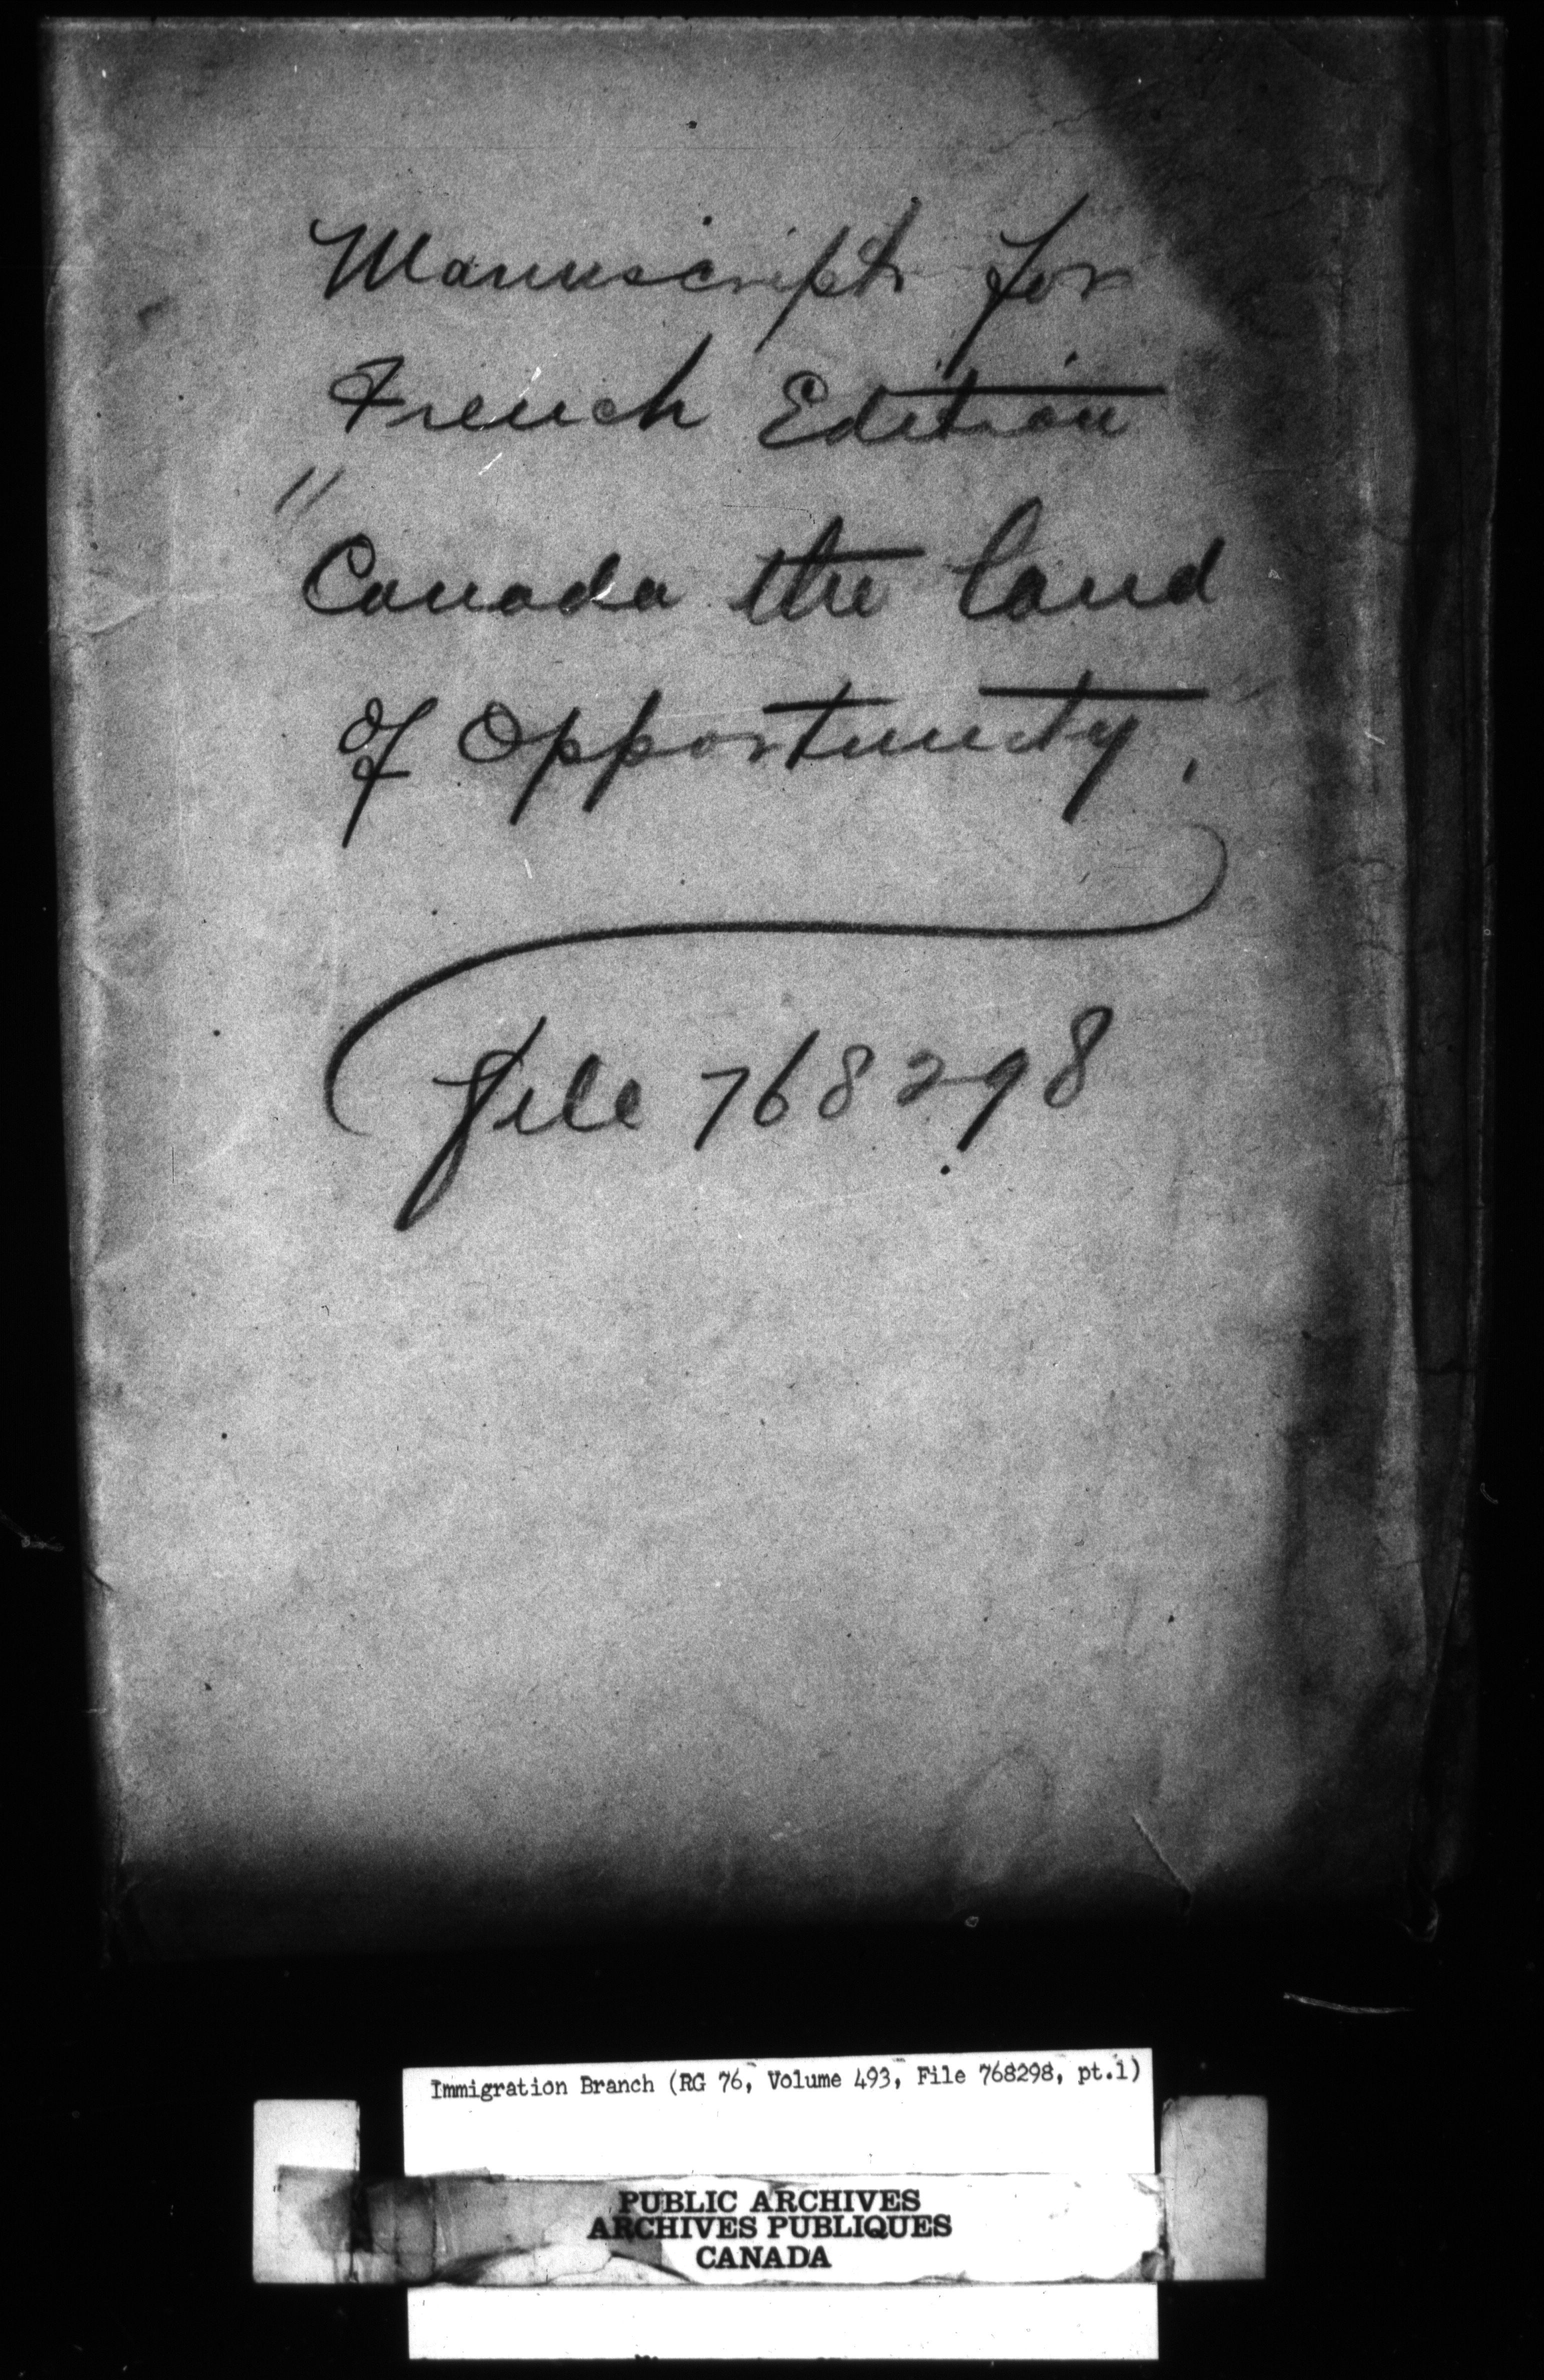 Manuscript for
French Edition
"Canada the land
of Opportunity,"
File 768298
Immigration Branch (RG 76, Volume 493, File 768298, pt.1)
PUBLIC ARCHIVES
ARCHIVES PUBLIQUES
CANADA